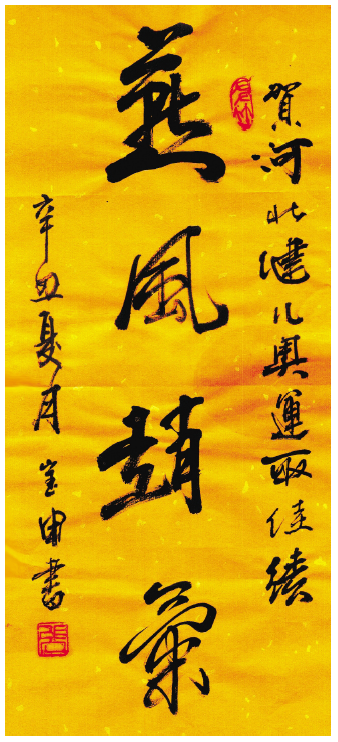 賀河北健儿奧運取佳績
燕風趙氣
辛丑夏月
金申書